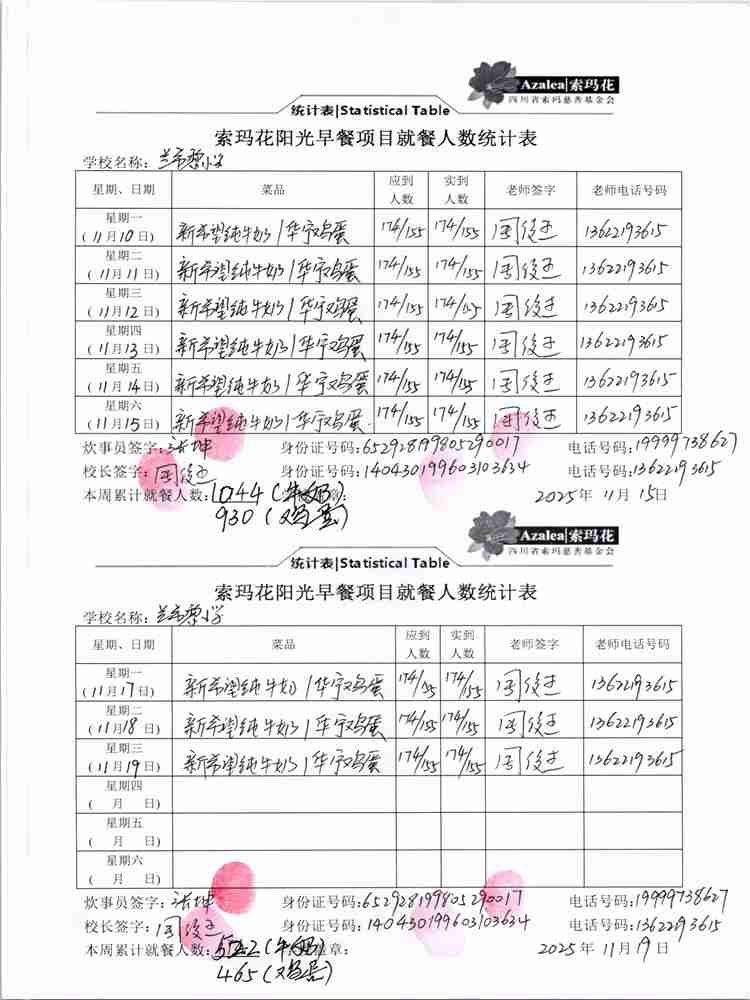 Azalea|索玛花
四川省索玛慈善基金会
统计表|Statistical Table
索玛花阳光早餐项目就餐人数统计表
学校名称:
星期、日期 菜品 应到人数 实到人数 老师签字 老师电话号码
星期一 (11月10日) 新希望纯牛奶/华宁鸡蛋 174/155 174/155 周俊 13622193615
星期二 (11月11日) 新希望纯牛奶/华宁鸡蛋 174/155 174/155 周俊 13622193615
星期三 (11月12日) 新希望纯牛奶/华宁鸡蛋 174/155 174/155 周俊 13622193615
星期四 (11月13日) 新希望纯牛奶/华宁鸡蛋 174/155 174/155 周俊 13622193615
星期五 (11月14日) 新希望纯牛奶/华宁鸡蛋 174/155 174/155 周俊 13622193615
星期六 (11月15日) 新希望纯牛奶/华宁鸡蛋 174/155 174/155 周俊 13622193615
炊事员签字:张坤 身份证号码:652928199805290017 电话号码:19999738627
校长签字:周俊 身份证号码:140430199603103634 电话号码:13622193615
本周累计就餐人数:1044(牛奶) 章: 2025年11月15日
930(鸡蛋)
Azalea|索玛花
四川省索玛慈善基金会
统计表|Statistical Table
索玛花阳光早餐项目就餐人数统计表
学校名称:
星期、日期 菜品 应到人数 实到人数 老师签字 老师电话号码
星期一 (11月17日) 新希望纯牛奶/华宁鸡蛋 174/155 174/155 周俊 13622193615
星期二 (11月18日) 新希望纯牛奶/华宁鸡蛋 174/155 174/155 周俊 13622193615
星期三 (11月19日) 新希望纯牛奶/华宁鸡蛋 174/155 174/155 周俊 13622193615
星期四 ( 月 日)
星期五 ( 月 日)
星期六 ( 月 日)
炊事员签字:张坤 身份证号码:652928199805290017 电话号码:19999738627
校长签字:周俊 身份证号码:140430199603103634 电话号码:13622193615
本周累计就餐人数:522(牛奶) 章: 2025年11月19日
465(鸡蛋)